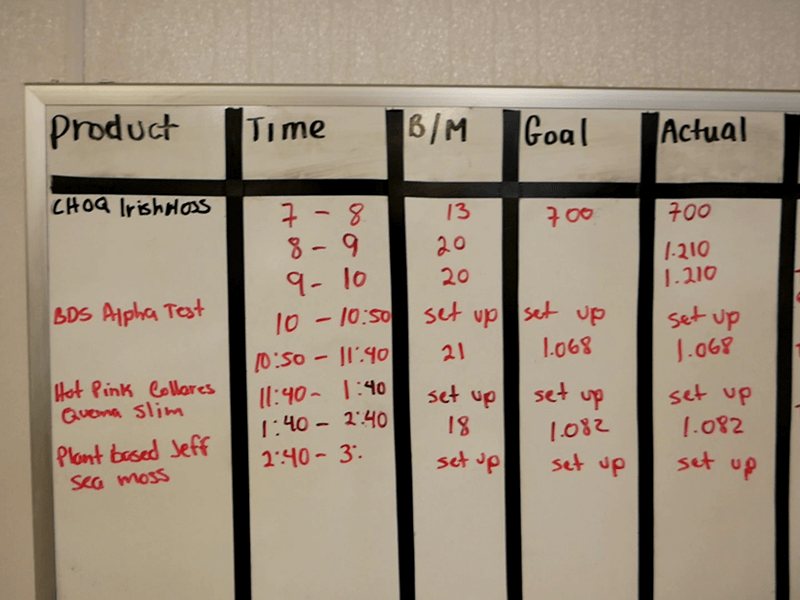 Product Time B/M Goal Actual
CHOQ IrishMoss 7 - 8 13 700 700
8 - 9 20 1.210
9 - 10 20 1.210
BDS Alpha Test 10 - 10:50 set up set up set up
10:50 - 11:40 21 1.068 1.068
Hot Pink Collares 11:40 - 1:40 set up set up set up
Quema Slim 1:40 - 2:40 18 1.082 1.082
Plant based Jeff 2:40 - 3: set up set up set up
sea moss